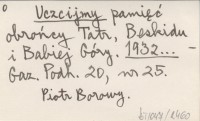 Uczcijmy pamięć
obrońcy Tatr, Beskidu
i Babiej Góry. 1932... -
Gaz. Podh. 20, nr 25.
Piotr Borowy.